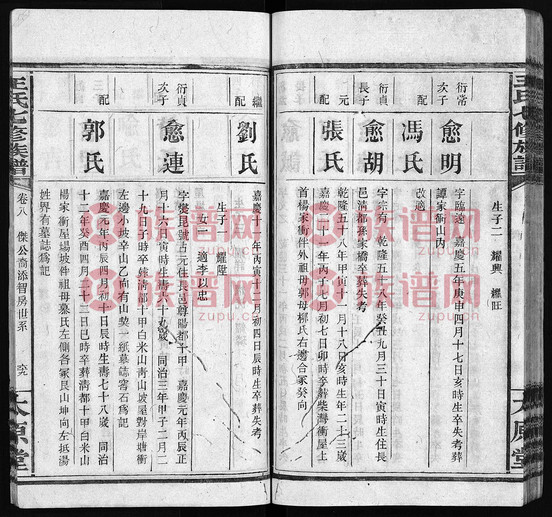 王氏七修族譜
太原堂
生子二 耀興 耀旺
衍常
愈明
字臨達 嘉慶五年庚申四月十七日亥時生卒葬
譚家衝山內
馮氏
改適
衍貞
長子
愈胡
字宗有 乾隆五十八年癸丑九月三十日寅時生住長
邑清都孫家橋卒葬失考
元
配
張氏
乾隆五十八年甲寅十一月十八日亥時生年二十三歲
嘉慶二十一年丙子七月初七日卯時卒葬柴灣衝屋上
首楊家衝件外祖母郭母柳氏右邊合冢癸向
繼
配
劉氏
嘉慶十一年丙寅十二月初四日辰時生卒葬失考
生子一 耀陞
女一 適李以忠
衍貞
次子
愈連
字燮民號占元住長邑尊陽都十甲 嘉慶元年丙辰正
月十六日寅時生年六十九歲 同治三年甲子二月二
十九日子時卒葬清都十甲白米山青山坡屋對岸塘衝
左邊小坡辛山乙向有山契一紙墓誌窖石為記
配
郭氏
嘉慶元年丙辰四月初十日辰時生壽七十八歲 同治
十二年癸酉四月二十三日巳時卒葬清都十甲白米山
楊家衝屋場坡件祖母蔡氏左側各冢艮山坤向左抵湯
姓界有墓誌為記
王氏七修族譜
卷八 傑公裔添智房世系
太原堂
族譜網
www.zupu.cn